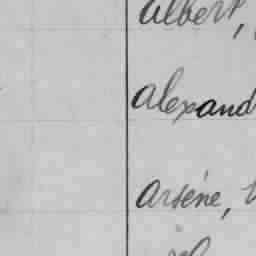 Albert,
Alexand
Arséne,